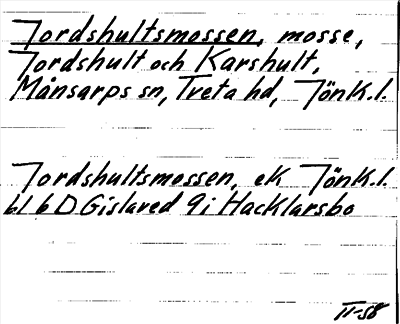 Jordshultsmossen, mosse,
Jordshult och Karshult,
Månsarps sn, Tveta hd, Jönk.l.
Jordshultsmossen, ek Jönk.l.
bl 6 D Gislaved 9i Hacklarsbo
II-58